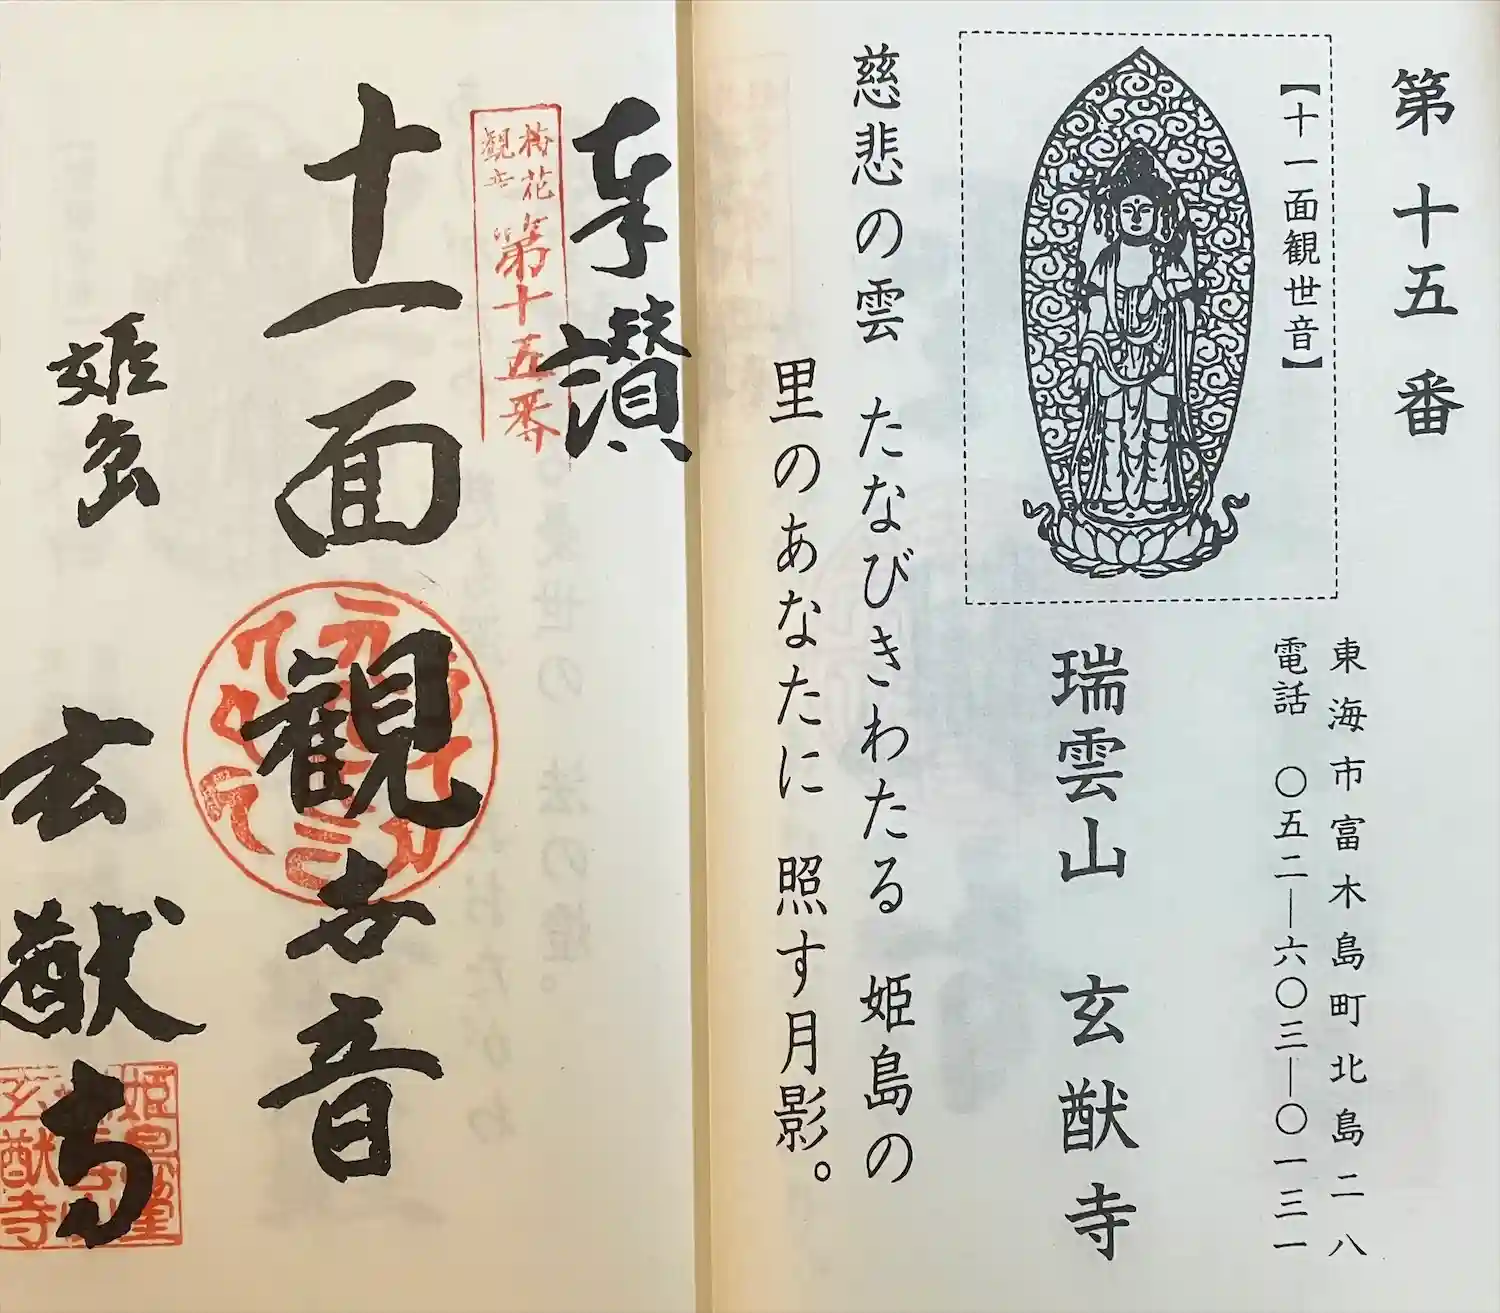 第十五番
【十一面観世音】
東海市富木島町北島二八
電話 〇五二―六〇三―〇一三一
瑞雲山 玄猷寺
慈悲の雲 たなびきわたる 姫島の
里のあなたに 照す月影。
奉讃
梅花
観音
第十五番
十一面観世音
姫島
玄猷寺
姫島
玄猷寺